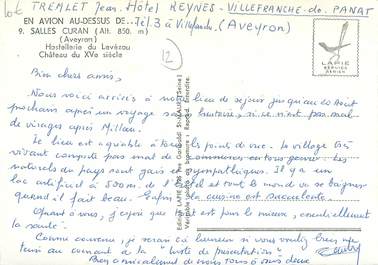 TREMLET Jean. Hôtel REYNES - VILLEFRANCHE-de-PANAT
EN AVION AU-DESSUS DE... Tél. 3 à Villefranche. (Aveyron)
9. SALLES CURAN (Alt. 850. m)
(Aveyron)
Hostellerie du Levézou
Château du XVe siècle
12
LAPIE
SERVICE
AERIEN
Bien chers amis,
Nous voici arrivés à no lieu de séjour jusqu'au 10 août
prochain après un voyage sans histoire, si ce n'est pas mal
de virages après Millau.
Le lieu est agréable à tous les points de vue. Le village très
vivant compte pas mal de commerces en tous genres. Les
naturels du pays sont gais et sympathiques. Il y a un
lac artificiel à 500 m. de l'hôtel et tout le monde va se baigner
quand il fait beau. Enfin, la cuisine est succulente.
Quant à vous, j'espère que tout est pour le mieux, essentiellement
la santé.
Comme convenu, je serai heureux si vous voulez bien me
tenir au courant de la "liste de présentation".
Bien amicalement de nous tous à vous deux